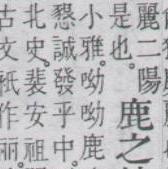 麗二陽
是也
鹿之
小雅呦呦鹿
懇誠發乎中
北史裴安祖
古文祇作丽